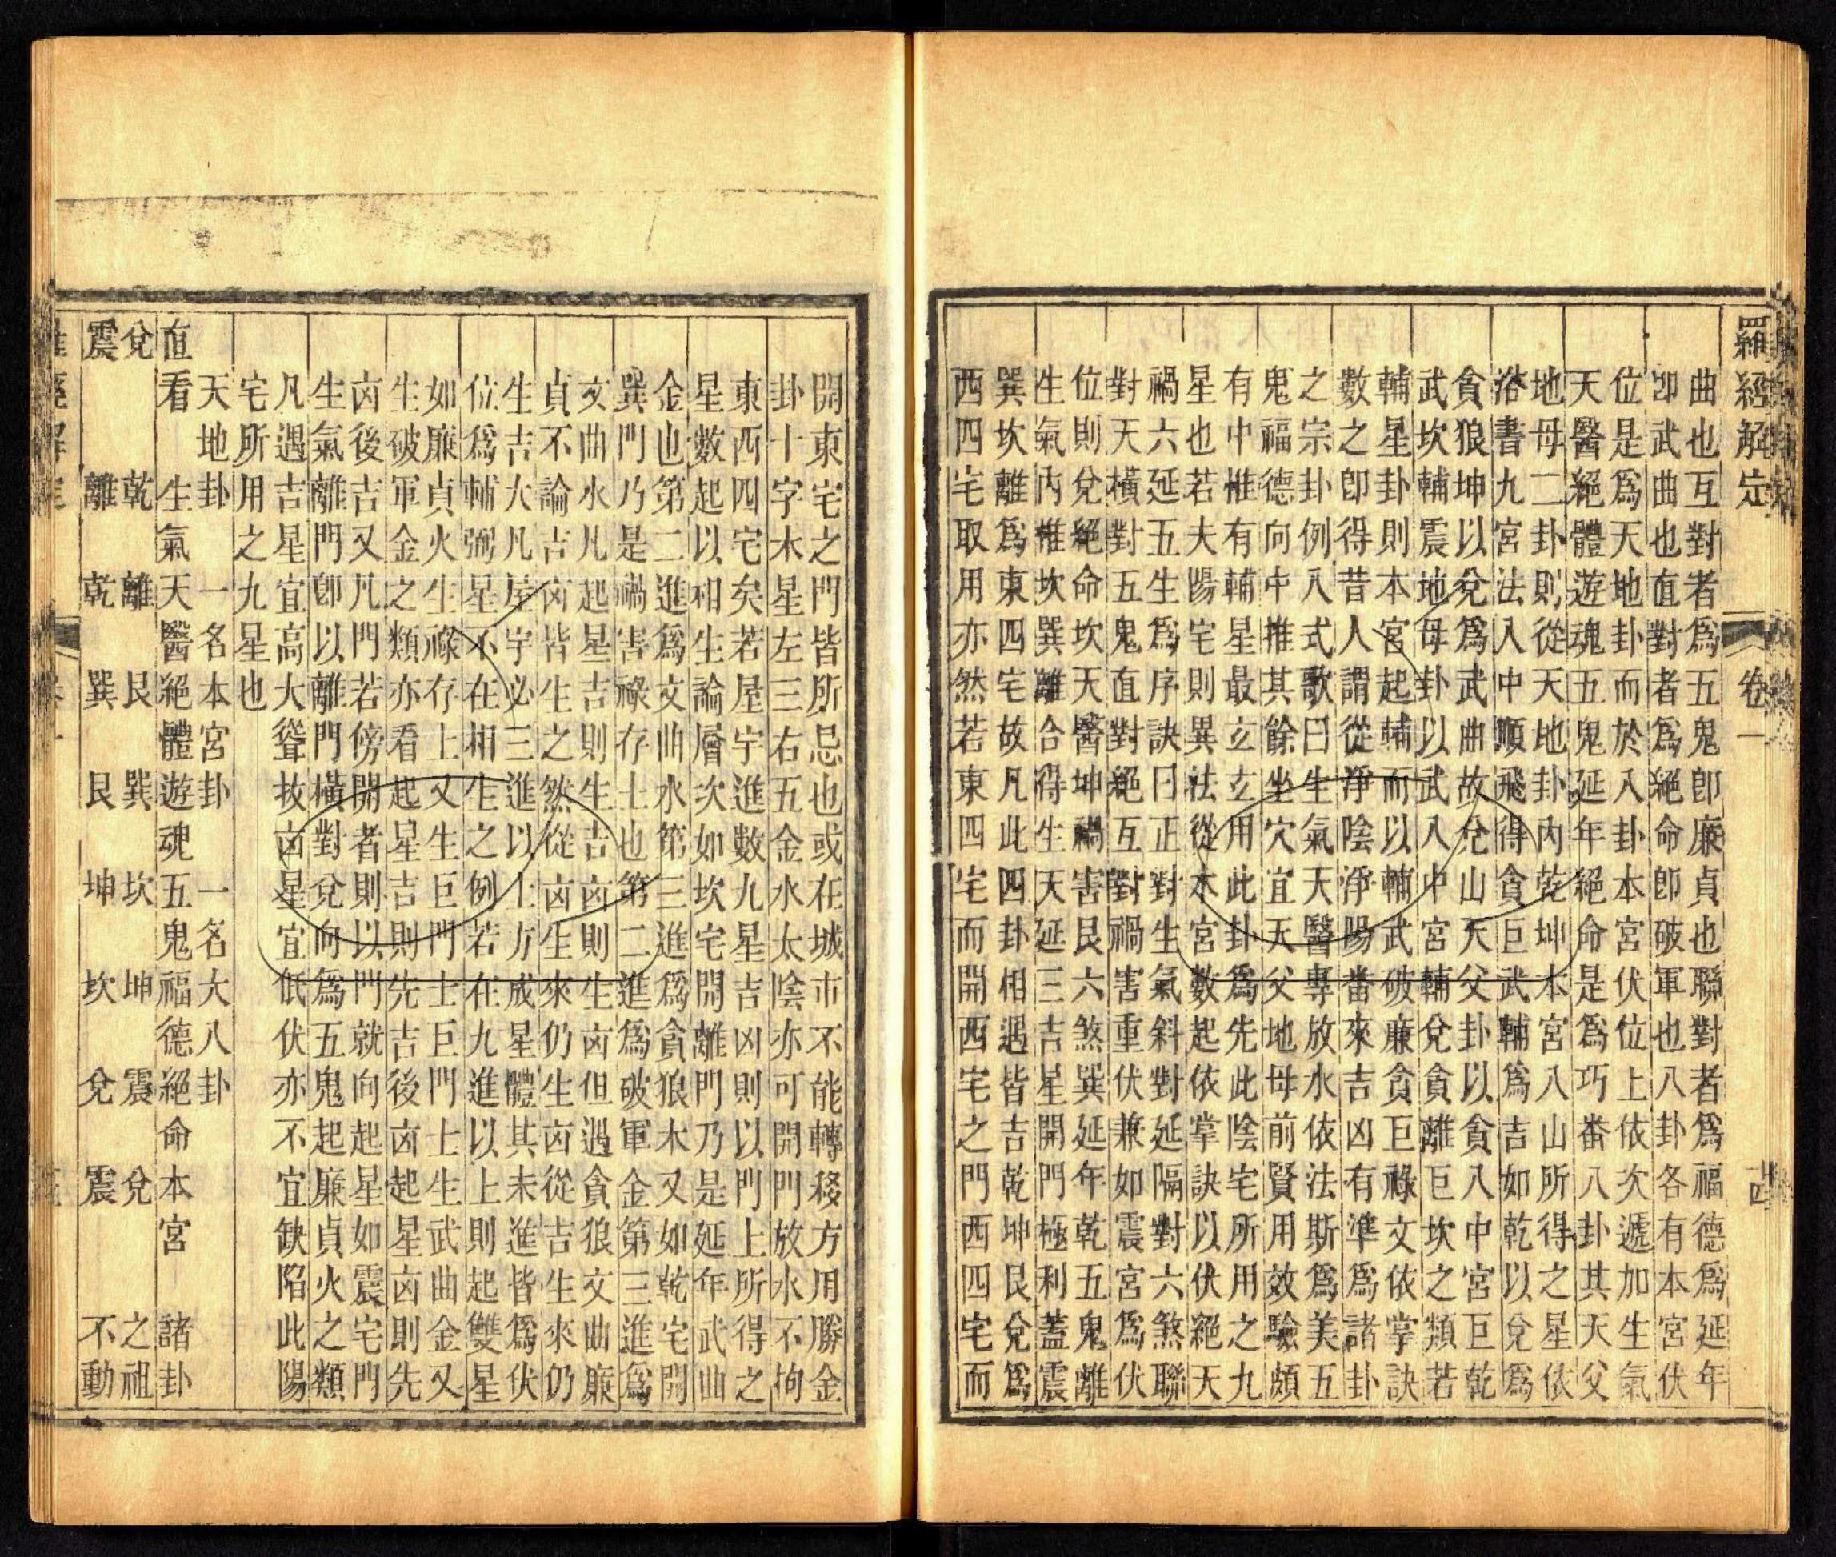 羅經解定 卷一
曲也互對者爲五鬼卽廉貞也聯對者爲福德爲延年
卽武曲也直對者爲絕命卽破軍也八卦各有本宮伏
位是爲天地卦而於八卦本宮伏位上依次遞加生氣
天醫絕體遊魂五鬼延年絕命是爲巧番八卦其天父
地母二卦則從天地卦內乾坤本宮八山所得之星依
洛書九宮法入中順飛得貪巨武輔爲吉如乾以兌爲
貪狼坤以兌爲武曲故兌山天父卦以貪入中宮巨乾
武坎輔震地母卦以武入中宮輔兌貪離巨坎之類若
輔星卦則本宮起輔而以輔武破廉貪巨祿文依掌訣
數之卽得昔人謂從淨陰淨陽番來吉凶有準爲諸卦
之宗卦例八式歌曰生氣天醫專放水依法斯爲美五
鬼福德向中推其餘坐穴宜天父地母前賢用效驗頗
有中惟有輔星最玄玄用此卦爲先此陰宅所用之九
星也若夫陽宅則異法從本宮數起依掌訣以伏絕天
禍六延五生爲序訣曰正對生氣斜對延隔對六煞聯
對天橫對五鬼直對絕互對禍害重伏兼如震宮爲伏
位則兌絕命坎天醫坤禍害艮六煞巽延年乾五鬼離
生氣內惟坎巽離合得生天延三吉星開門極利蓋震
巽坎離爲東四宅故凡此四卦相遇皆吉乾坤艮兌爲
西四宅取用亦然若東四宅而開西宅之門西四宅而
開東宅之門皆所忌也或在城市不能轉移方用勝金
卦十字木星左三右五金水太陰亦可開門放水不拘
東西四宅矣若屋宇進數九星吉凶則以門上所得之
星數起以相生論層次如坎宅開離門乃是延年武曲
金也第二進爲文曲水第三進爲貪狼木又如乾宅開
巽門乃是禍害祿存土也第二進爲破軍金第三進爲
文曲水凡起星吉則生吉凶則生凶但遇貪狼文曲廉
貞不論吉凶皆生之然從凶生來仍生凶從吉生來仍
生吉大凡屋宇必三進以上方成星體其未進皆爲伏
位爲輔弼星不在相生之例若在九進以上則起雙星
如廉貞火生祿存土又生巨門土巨門土生武曲金又
生破軍金之類亦看起星吉則先吉後凶起星凶則先
凶後吉又凡門若傍開者則以門就向起星如震宅門
生氣離門卽以離門橫對兌向爲五鬼起廉貞火之類
凡遇吉星宜高大聳故凶星宜低伏亦不宜缺陷此陽
宅所用之九星也
天地卦 一名本宮卦 一名大八卦
直看 生氣天醫絕體遊魂五鬼福德絕命本宮 諸卦
兌 乾 離 艮 巽 坎 坤 震 兌 之祖
震 離 乾 巽 艮 坤 坎 兌 震 不動